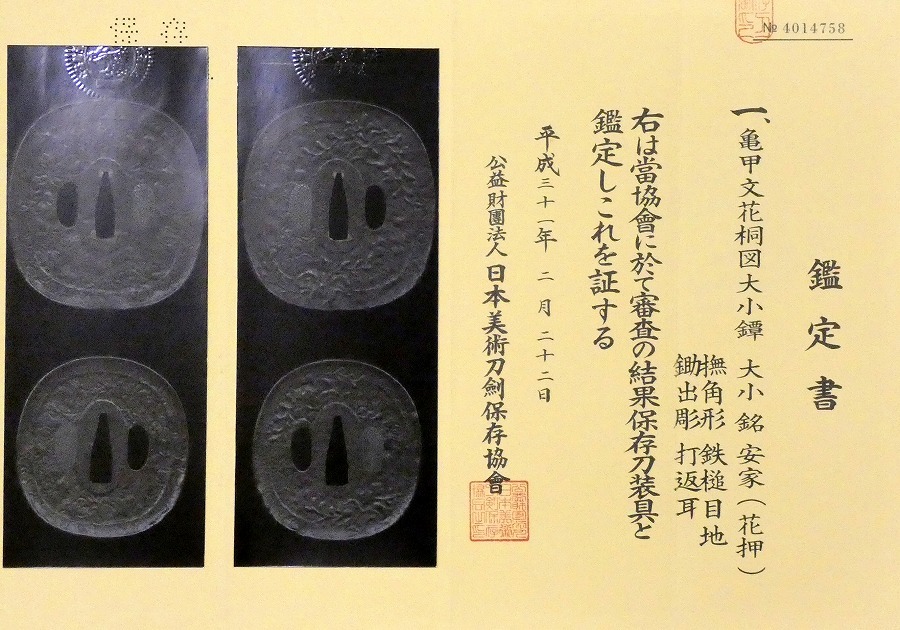 № 4014758
鑑定書
一、亀甲文花桐図大小鐔 大小 銘 安家(花押)
撫角形 鉄槌目地
鋤出彫 打返耳
右は當協會に於て審査の結果保存刀装具と
鑑定しこれを証する
平成三十一年 二月 二十二日
公益財團法人 日本美術刀劍保存協會
保存